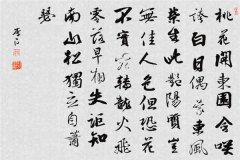 桃花開東園含咲
誇白日偶蒙東風
榮生此豔陽質豈
無佳人色但恐花
不實宛轉龍火飛
零落早相失詎知
南山松獨立自蕭
瑟